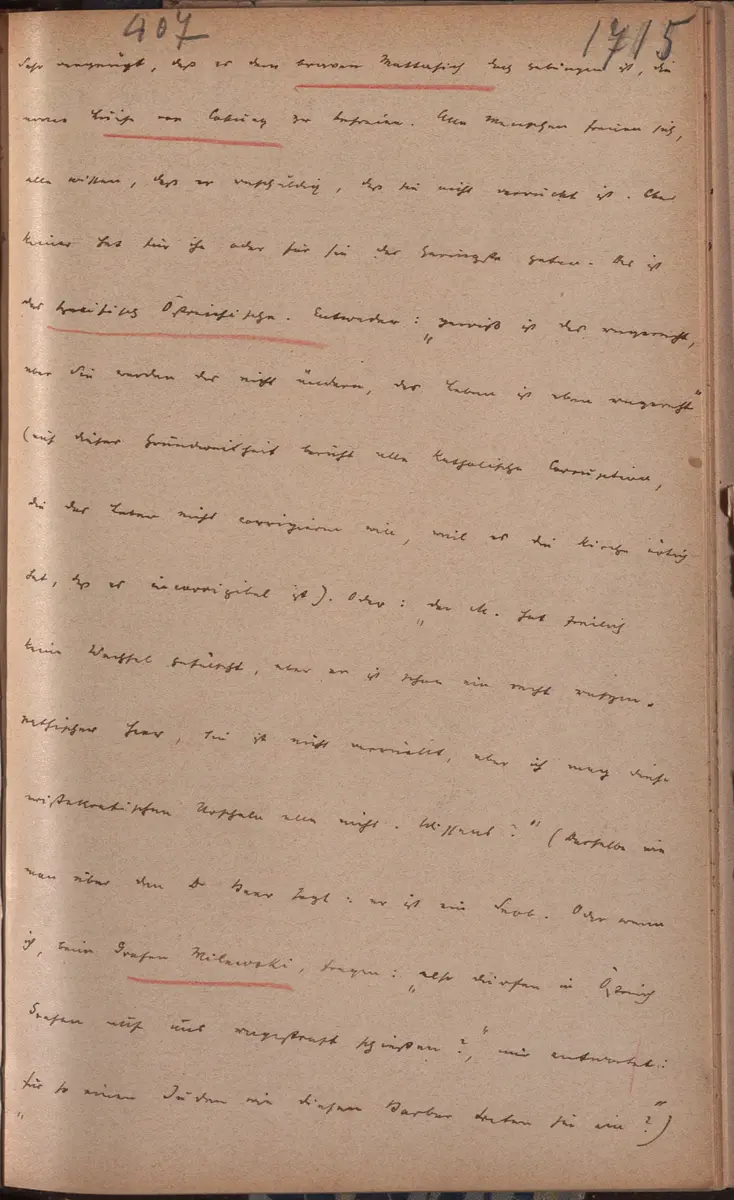 407 1715
Sehr vergnügt, daß es dem braven Mattasich doch gelungen ist, die
arme Luise von Coburg zu befreien. Alle Menschen freuen sich,
alle wissen, daß er unschuldig, daß sie nicht verrückt ist. Aber
keiner hat für ihn oder für sie das Geringste getan. Das ist
das spezifisch Österreichische. Entweder: „gewiß ist das ungerecht,
aber Sie werden das nicht ändern, das Leben ist eben ungerecht"
(auf dieser Grundweisheit beruht alle katholische Corruption,
die das Leben nicht corrigieren will, weil es die Kirche
hat, daß es incorrigibel ist). Oder: „der M. hat freilich
keine Wechsel gefälscht, aber er ist schon ein recht unsym-
pathischer Herr, sie ist nicht verrückt, aber ich mag diese
aristokratischen Urscheln alle nicht. Wissens?" (Dasselbe wie
man über den Dr Beer sagt: er ist ein Snob. Oder wenn
ich, beim Grafen Milewski, fragen: „also dürfen in Österreich
Grafen auf uns ungestraft schießen?", mir antwortet:
„für so einen Juden wie diesen Barber treten Sie ein?")